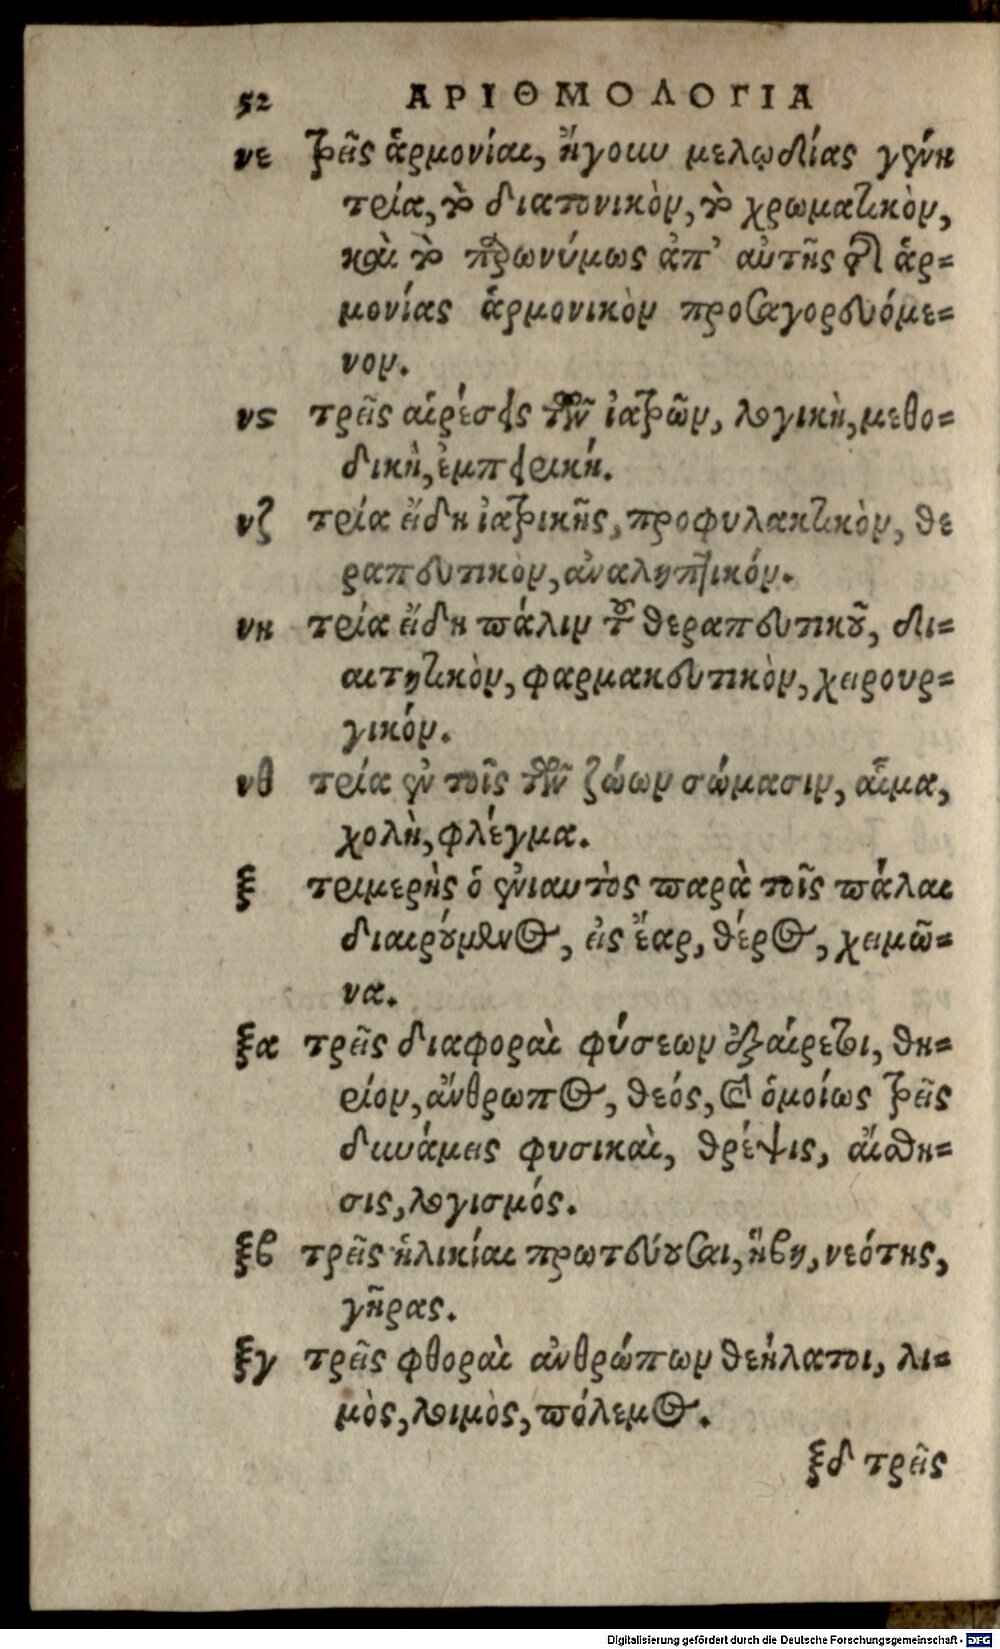 52 ΑΡΙΘΜΟΛΟΓΙΑ
νε τρεῖς ἁρμονίαι, ἤγουν μελῳδίας γένη
τρία, τὸ διατονικὸν, τὸ χρωματικὸν,
καὶ τὸ παρωνύμως ἀπ' αὐτῆς τῆς ἁρ-
μονίας ἁρμονικὸν προσαγορευόμε-
νον.
νς τρεῖς αἱρέσεις τῶν ἰατρῶν, λογικὴ, μεθο-
δικὴ, ἐμπειρική.
νζ τρία εἴδη ἰατρικῆς, προφυλακτικὸν, θε
ραπευτικὸν, ἀναληπτικόν.
νη τρία εἴδη πάλιν τοῦ θεραπευτικοῦ, δι-
αιτητικὸν, φαρμακευτικὸν, χειρουρ-
γικόν.
νθ τρία ἐν τοῖς τῶν ζώων σώμασιν, αἷμα,
χολὴ, φλέγμα.
ξ τριμερὴς ὁ ἐνιαυτὸς παρὰ τοῖς πάλαι
διαιρούμενος, εἰς ἔαρ, θέρος, χειμῶ-
να.
ξα τρεῖς διαφοραὶ φύσεων ἐξαίρετοι, θη-
ρίον, ἄνθρωπος, θεός, καὶ ὁμοίως τρεῖς
δυνάμεις φυσικαὶ, θρέψις, αἴσθη-
σις, λογισμός.
ξβ τρεῖς ἡλικίαι πρωτεύουσαι, ἥβη, νεότης,
γῆρας.
ξγ τρεῖς φθοραὶ ἀνθρώπων θεήλατοι, λι-
μὸς, λοιμὸς, πόλεμος.
ξδ τρεῖς
Digitalisierung gefördert durch die Deutsche Forschungsgemeinschaft - DFG